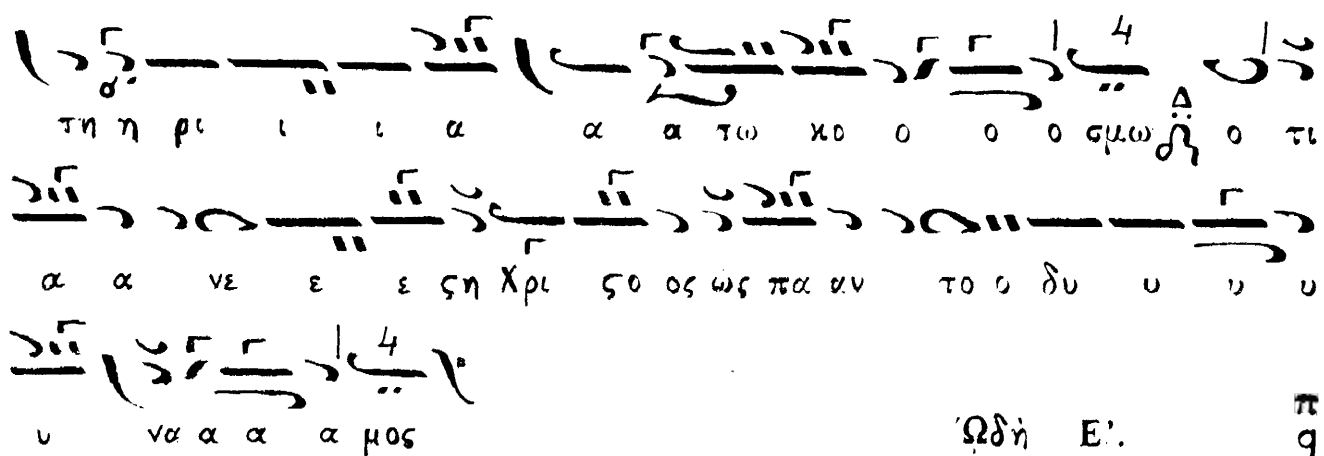 τη η ρι ι ι α α α τω κο ο ο ο σμω ο τι
α α νε ε ε ϛη Χρι ϛο ος ως πα αν το ο δυ υ υ υ
υ να α α α μος Ὠδὴ Ε'. π
q